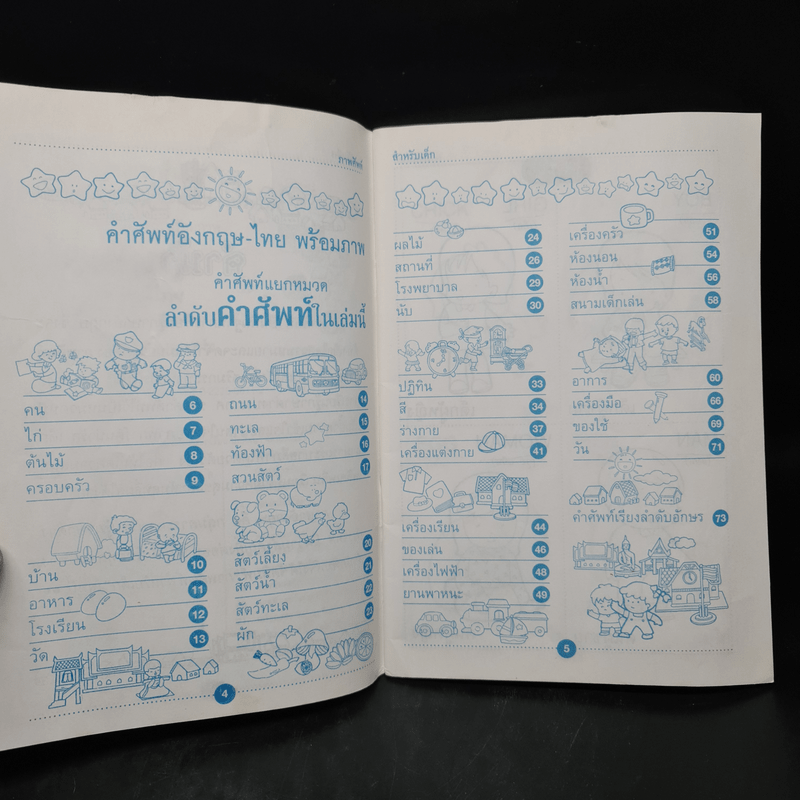 ภาพศัพท์
คำศัพท์อังกฤษ-ไทย พร้อมภาพ
คำศัพท์แยกหมวด
ลำดับคำศัพท์ในเล่มนี้
คน 6
ไก่ 7
ต้นไม้ 8
ครอบครัว 9
บ้าน 10
อาหาร 11
โรงเรียน 12
วัด 13
ถนน 14
ทะเล 15
ท้องฟ้า 16
สวนสัตว์ 17
สัตว์เลี้ยง 20
สัตว์น้ำ 21
สัตว์ทะเล 22
ผัก 23
4
สำหรับเด็ก
ผลไม้ 24
สถานที่ 26
โรงพยาบาล 29
นับ 30
ปฏิทิน 33
สี 34
ร่างกาย 37
เครื่องแต่งกาย 41
เครื่องเรียน 44
ของเล่น 46
เครื่องไฟฟ้า 48
ยานพาหนะ 49
เครื่องครัว 51
ห้องนอน 54
ห้องน้ำ 56
สนามเด็กเล่น 58
อาการ 60
เครื่องมือ 66
ของใช้ 69
วัน 71
คำศัพท์เรียงลำดับอักษร 73
5